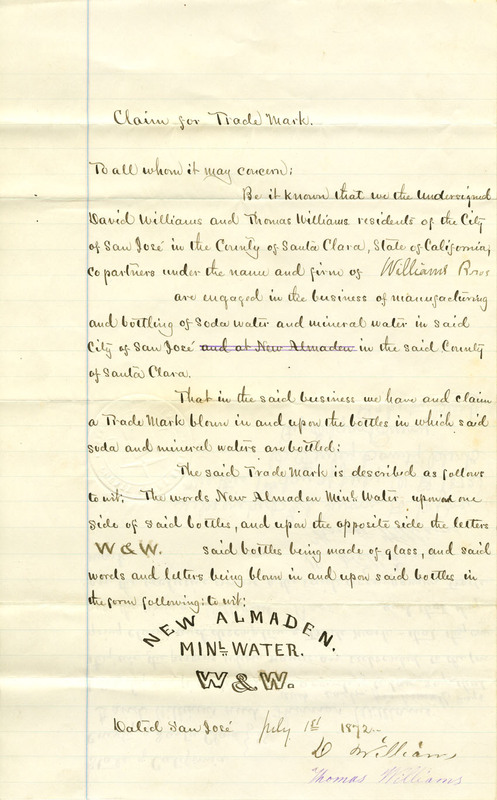 Claim for Trade Mark.
To all whom it may concern:
Be it known that we the undersigned
David Williams and Thomas Williams residents of the City
of San José in the County of Santa Clara, State of California,
Copartners under the name and firm of Williams Bros
are engaged in the business of manufacturing
and bottling of Soda water and mineral water in said
City of San José and at New Almaden in the said County
of Santa Clara.
That in the said business we have and claim
a Trade Mark blown in and upon the bottles in which said
soda and mineral waters are bottled:
The said Trade Mark is described as follows
to wit; The words New Almaden Minl. Water upon one
side of said bottles, and upon the opposite side the letters
W & W. said bottles being made of glass, and said
words and letters being blown in and upon said bottles in
the form following; to wit:
NEW ALMADEN.
MINL. WATER.
W & W.
Dated San José July 1st 1872
D Williams
Thomas Williams